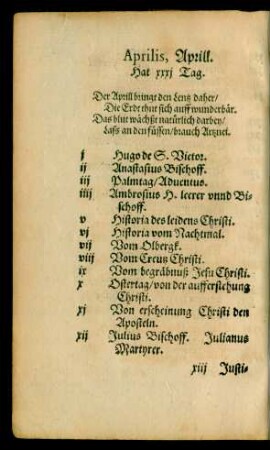 Aprilis, Aprill.
Hat xxxj Tag.
Der Aprill bringt den Lentz daher/
Die Erdt thut sich auff wunderbâr.
Das blut wächßt natürlich darben/
Laß an den füssen/ brauch Artznei.
j Hugo de S. Victor.
ij Anastasius Bischoff.
iij Palmtag/ Aduentus.
iiij Ambrosius H. leerer vnnd Bi-
schoff.
v Historia des leidens Christi.
vj Historia vom Nachtmal.
vij Vom Olbergk.
viij Vom Creutz Christi.
ix Vom begräbnuß Jesu Christi.
x Ostertag/ von der aufferstehung
Christi.
xj Von erscheinung Christi den
Aposteln.
xij Julius Bischoff. Julianus
Martyrer.
xiij Justi-